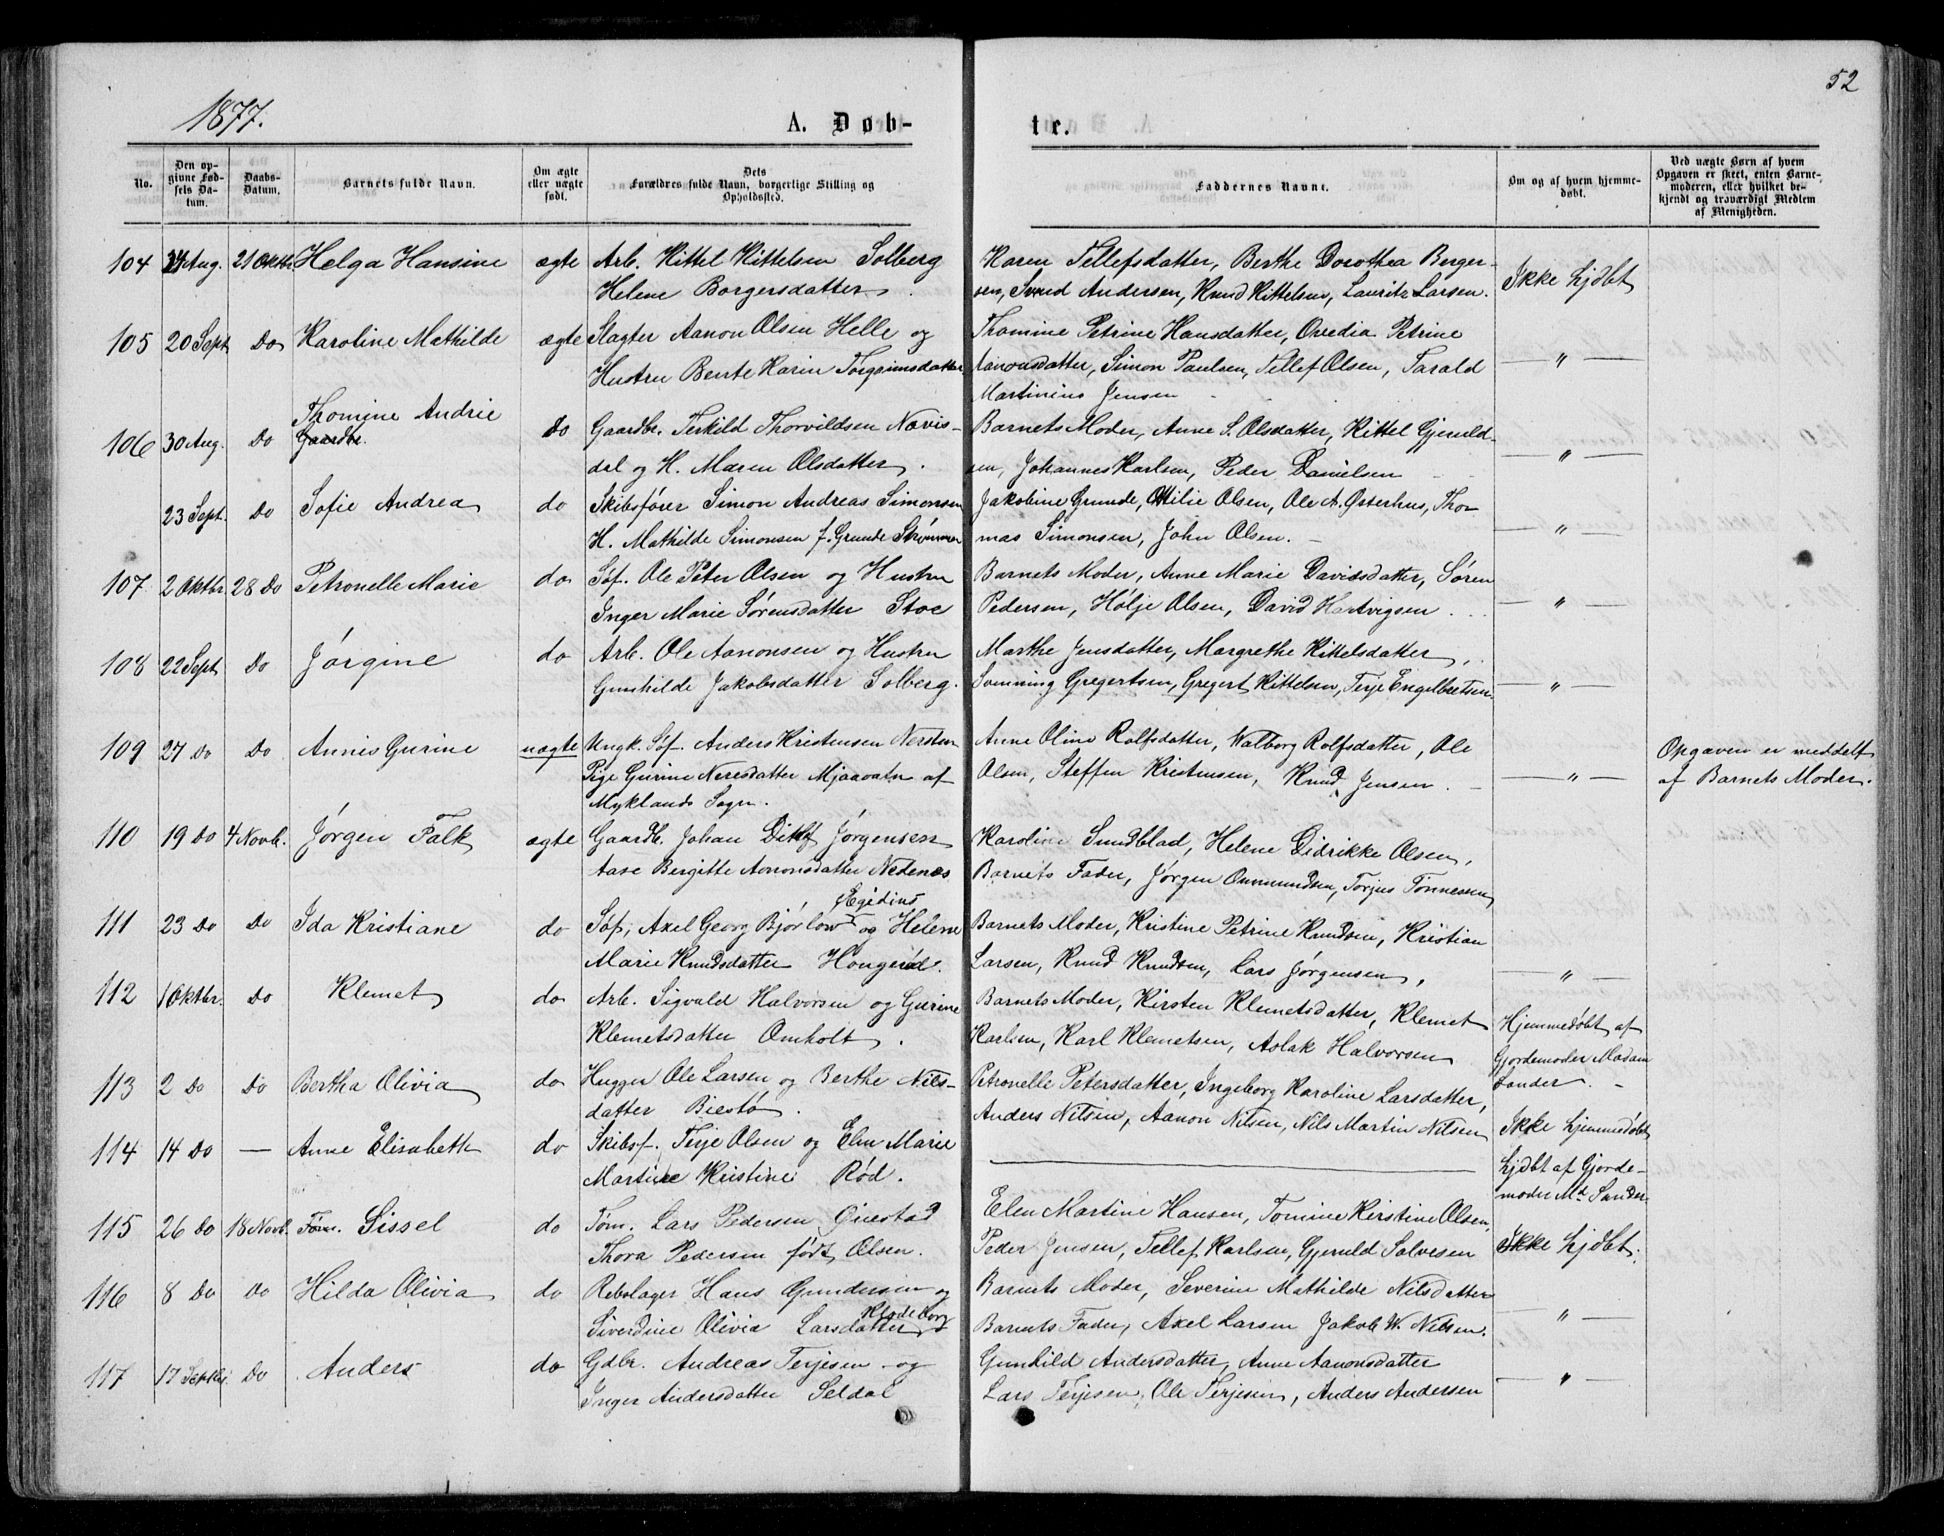 52
1877.
A. Døb-
te.
No.
Den opgivne Fødsels Datum.
Daabs-Datum.
Barnets fulde Navn.
Om ægte eller uægte født.
Dets Forældres fulde Navn, borgerlige Stilling og Opholdssted.
Faddernes Navne.
Om og af hvem hjemmedøbt.
Ved uægte Børn af hvem Opgaven er skeet, enten Barnemoderen, eller hvilket bekjendt og troværdigt Medlem af Menigheden.
104 Aug. 21 Oktbr Helga Hansine ægte Arb. Kittel Kittelsen Solberg
Helene Borgersdatter.
Karen Tellefsdatter, Berthe Dorothea Berger-
sen, Svend Andersen, Knud Kittelsen, Lauritz Larsen.
Ikke hjdbt
105 20 Sept Do Karoline Mathilde ægte Slagter Aanon Olsen Helle og
Hustru Bente Karin Torgrimsdatter
Thomine Petrine Hansdatter, Ovedia Petrine
Aanonsdatter, Simon Paulsen, Tellef Olsen, Tarald
Martinius Jensen
— " —
106 30 Aug. Do Thomine Andrie
Gaardbr.
Do Gaardbr. Terkild Thorvildsen Nævis-
dal og H. Maren Olsdatter.
Barnets Moder, Anne S. Olsdatter, Kittel Gjeruld-
sen, Johannes Karlsen, Peder Danielsen
— " —
23 Sept. Do Sofie Andrea do Skibsfører Simon Andreas Simonsen
H. Mathilde Simonsen f. Grunde Strømmen
Jakobine Grunde, Ottilie Olsen, Ole A. Østerhus, Tho-
mas Simonsen, John Olsen.
— " —
107 2 Oktbr. 28 Do Petronelle Marie do Søf. Ole Peter Olsen og Hustru
Inger Marie Sørensdatter Stoe
Barnets Moder, Anne Marie Davidsdatter, Søren
Pedersen, Holje Olsen, David Hartvigsen
— " —
108 22 Sept Do Jørgine do Arb. Ole Aanonsen og Hustru
Gunhilde Jakobsdatter Solberg.
Marthe Jensdatter, Margrethe Kittelsdatter,
Gregertsen, Gregert Kittelsen, Terje Engelbretsen.
— " —
109 27 Do Do Annie Gurine uægte Ungk. Søf. Anders Kristensen Nersten
Pige Gurine Neresdatter Mjaavatn af
Myklands Sogn.
Anne Oline Rolfsdatter, Walborg Rolfsdatter, Ole
Olsen, Steffen Kristensen, Knud Jensen.
— " —
Opgaven er meddelt
af Barnets Moder.
110 19 Do 4 Novb. Jørgen Falk ægte Gaardb. Johan Ditlef Jørgensen
Aase Bergitte Aanonsdatter Nedenæs
Karoline Sundblad, Helene Didrikke Olsen,
Barnets Fader, Jørgen Omundsen, Torjus Tønnessen
111 23 Do Do Ida Kristiane do Søf. Axel Georg Bjørlow Egidius og Helene
Marie Knudsdatter Hougerød.
Barnets Moder, Kristine Petrine Knudsen, Kristian
Larsen, Knud Knudsen, Lars Jørgensen,
— " —
112 1 Oktbr. Do Klemet do Arb. Sigvald Halvorsen og Gurine
Klemetsdatter Omholt.
Barnets Moder, Kirsten Klemetsdatter, Klemet
Karlsen, Karl Klemetsen, Aslak Halvorsen
Hjemmedøbt af
Gjordemoder Madam
Sander.
113 2 Do Do Bertha Olivia do Hugger Ole Larsen og Berthe Nils-
datter Biestø.
Petronelle Petersdatter, Ingeborg Karoline Larsdatter,
Anders Nilsen, Aanon Nilsen, Nils Martin Nilsen
Ikke hjemmedøbt
114 14 Do — Anne Elisabeth do Skibsf. Terje Olsen og Elen Marie
Martine Kristine Rød.
hjdbt af Gjorde-
moder Md Sander
115 26 Do 18 Novb. Tøm. Sissel do Tøm. Lars Pedersen Qvestad
Thora Pedersen født Olsen.
Elen Martine Hansen, Tomine Kirstine Olsen,
Peder Jensen, Tellef Karlsen, Gjeruld Salvesen
Ikke hjdbt.
116 8 Do Do Hilda Olivia do Rebslager Hans Gundersen og
Siverdine Olivia Larsdatter Klodeborg
Barnets Moder, Severine Mathilde Nilsdatter
Barnets Fader, Axel Larsen Jakob W. Nilsen.
— " —
117 17 Septbr. Do Anders do Gdbr. Andreas Terjesen og
Inger Andersdatter Seldal
Gunhild Andersdatter, Anne Aanonsdatter
Lars Terjesen, Ole Terjesen, Anders Andersen
— " —